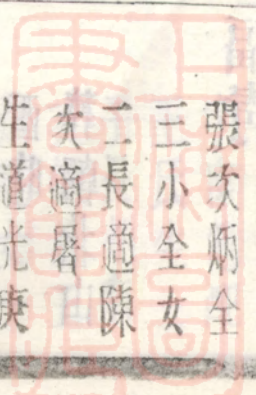 張次炳全
三小全女
二長適陳
次適曆
生道光庚